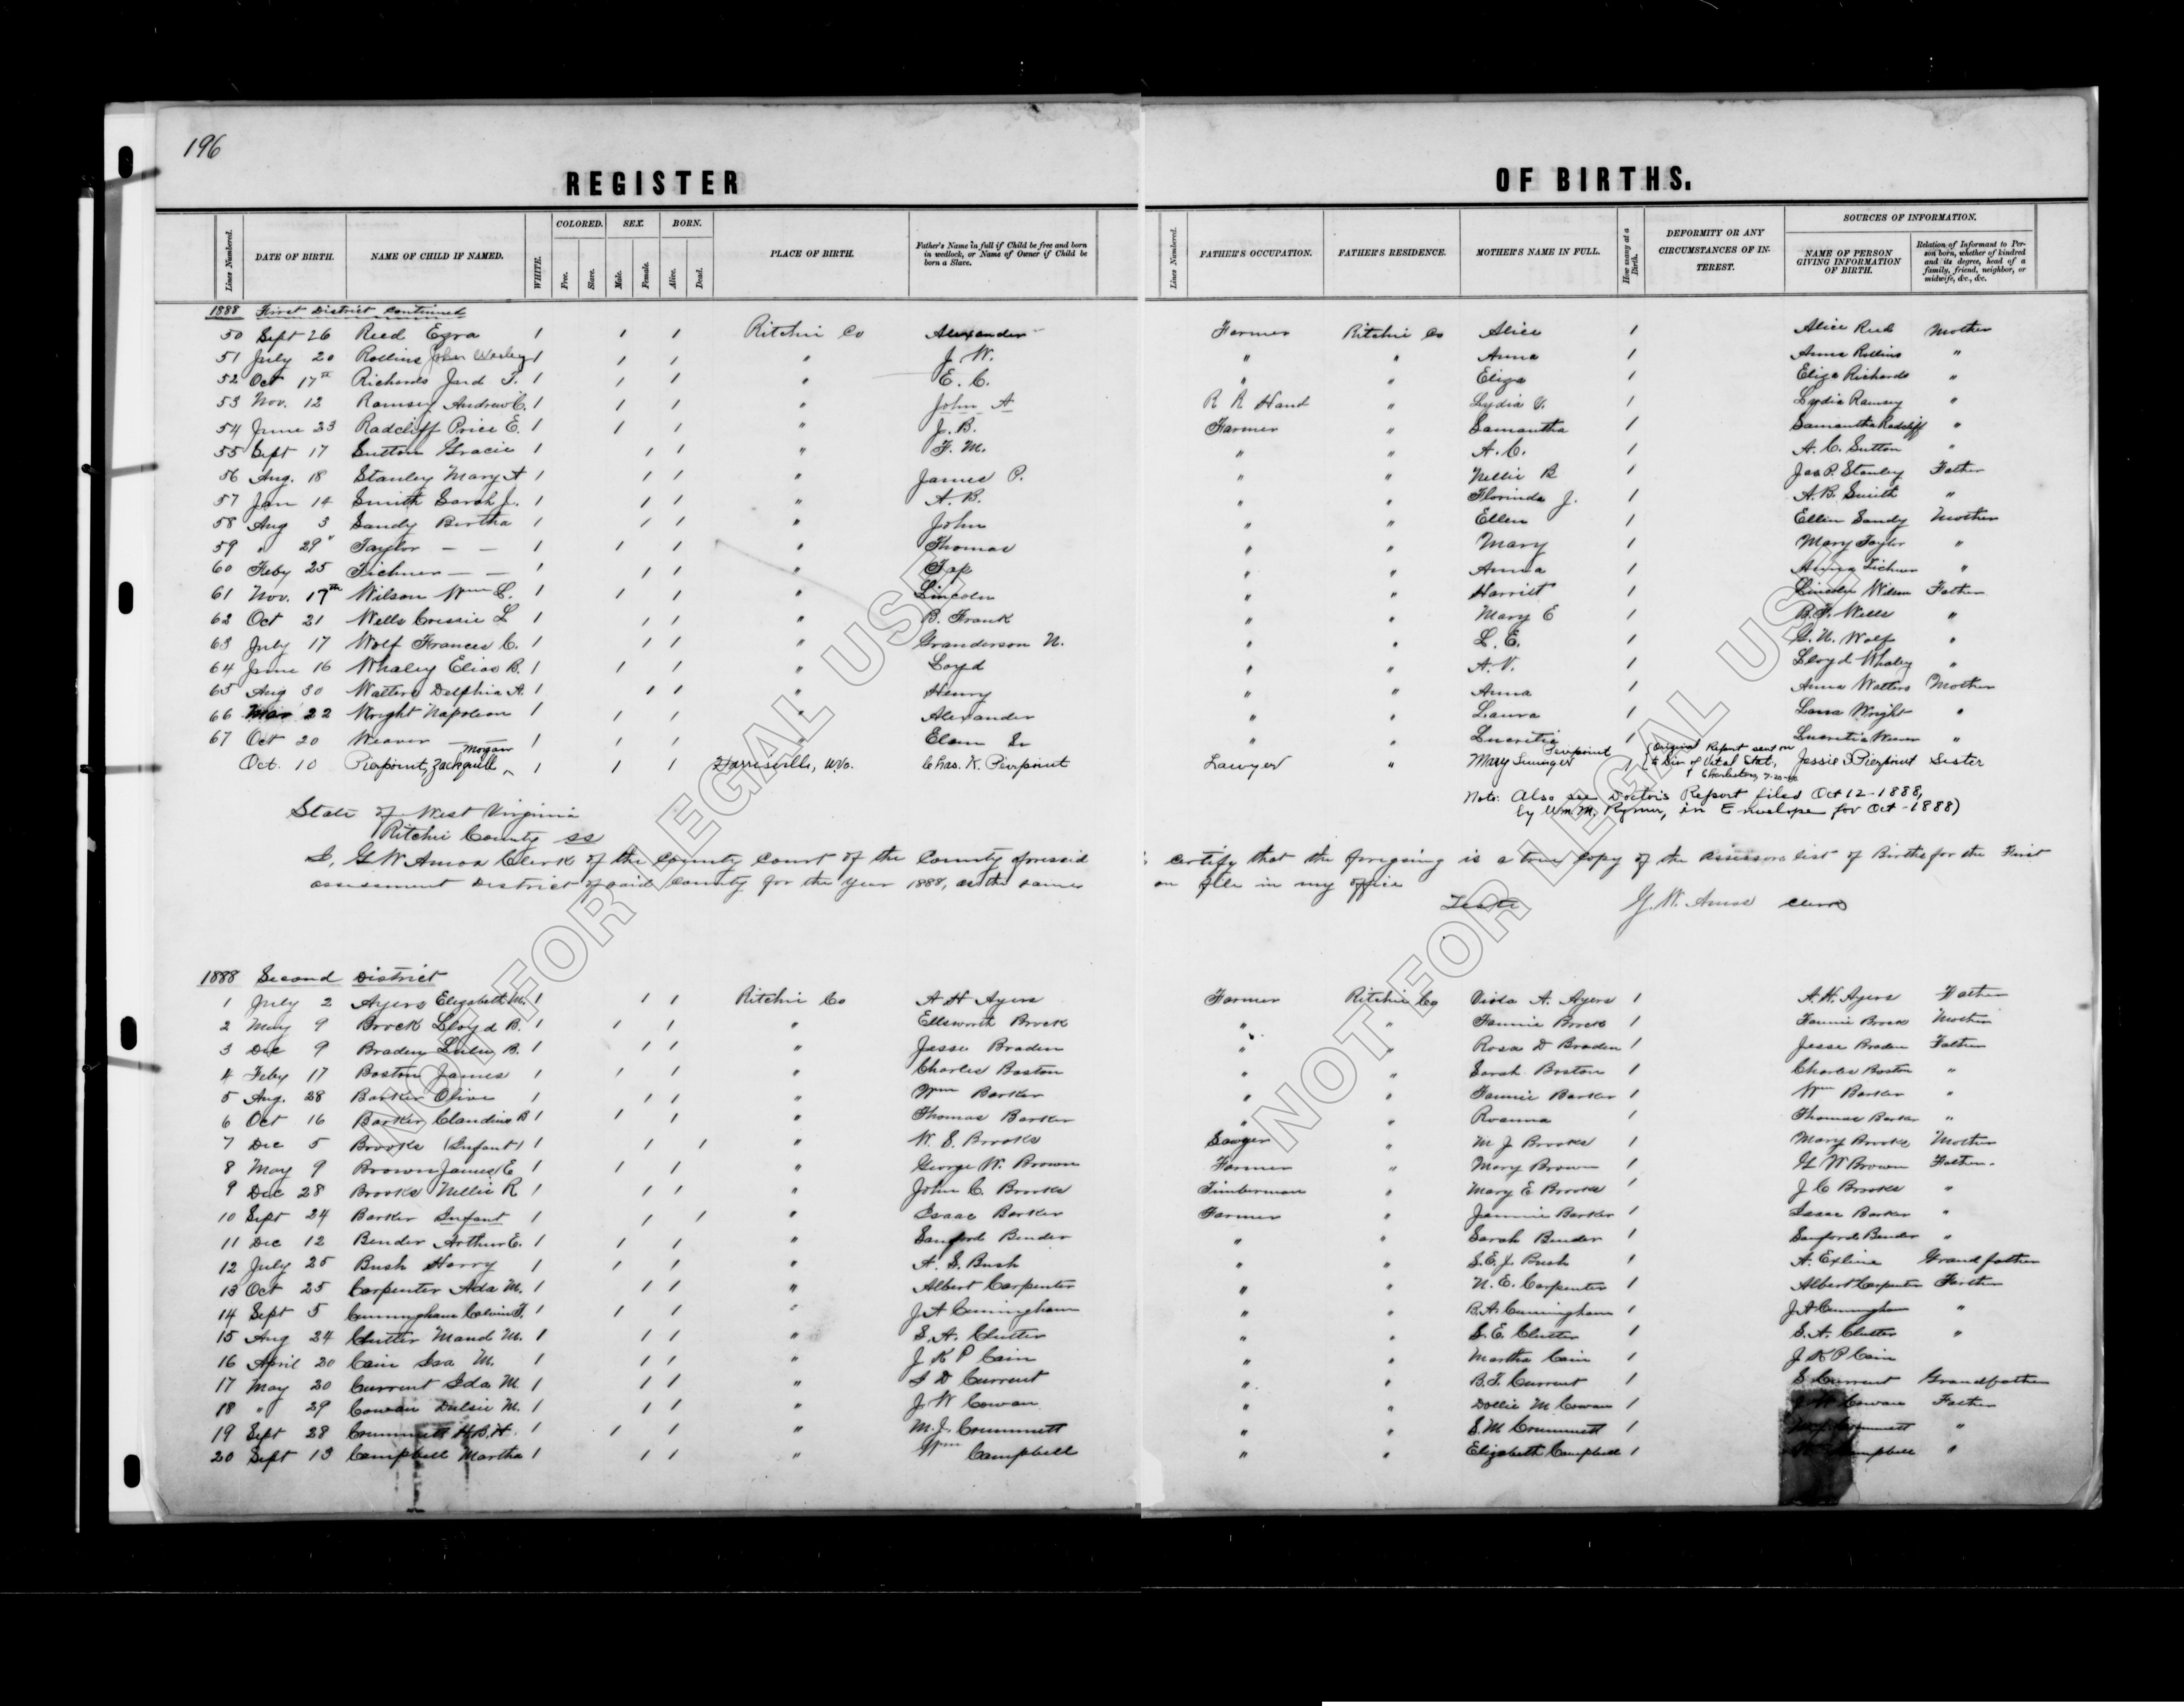 196
REGISTER OF BIRTHS.
Lines Numbered. DATE OF BIRTH. NAME OF CHILD IF NAMED. WHITE. COLORED. Free. Slave. SEX. Male. Female. BORN. Alive. Dead. PLACE OF BIRTH. Father's Name in full if Child be free and born in wedlock, or Name of Owner if Child be born a Slave. Lines Numbered. FATHER'S OCCUPATION. FATHER'S RESIDENCE. MOTHER'S NAME IN FULL. How many at a Birth. DEFORMITY OR ANY CIRCUMSTANCES OF INTEREST. SOURCES OF INFORMATION. NAME OF PERSON GIVING INFORMATION OF BIRTH. Relation of Informant to Person born, whether of kindred and its degree, head of a family, friend, neighbor, or midwife, &c., &c.
1888 First District Continued
50 Sept 26 Reed Ezra 1 1 1 Ritchie Co Alexander Farmer Ritchie Co Alice 1 Alice Reed Mother
51 July 20 Rollins John Wesley 1 1 1 " J. W. " " Anna 1 Anna Rollins "
52 Oct 17th Richards Jard T. 1 1 1 " E. C. " " Eliza 1 Eliza Richards "
53 Nov. 12 Ramsey Andrew C. 1 1 1 " John A R R Hand " Lydia V. 1 Lydia Ramsey "
54 June 23 Radcliff Price E. 1 1 1 " J. B. Farmer " Samantha 1 Samantha Radcliff "
55 Sept 17 Sutton Gracie 1 1 1 " F. M. " " A. C. 1 A. C. Sutton "
56 Aug. 18 Stanley Mary A 1 1 1 " James P. " " Nellie B 1 Jas P. Stanley Father
57 Jan 14 Smith Sarah J. 1 1 1 " A. B. " " Florinda J. 1 A. B. Smith "
58 Aug 3 Sandy Bertha 1 1 1 " John " " Ellen 1 Ellen Sandy Mother
59 " 29" Taylor — — 1 1 1 " Thomas " " Mary 1 Mary Taylor "
60 Feby 25 Tichner — — 1 1 1 " Tap " " Anna 1 Anna Tichner "
61 Nov. 17th Wilson Wm C. 1 1 1 " Lincoln " " Harriet 1 Lincoln Wilson Father
62 Oct 21 Wells Cressie L 1 1 1 " B. Frank " " Mary E 1 B. F. Wells "
63 July 17 Wolf Frances C. 1 1 1 " Granderson N. " " L. E. 1 G. N. Wolf "
64 June 16 Whaley Elias B. 1 1 1 " Loyd " " A. V. 1 Lloyd Whaley "
65 Aug 30 Watters Delphia A. 1 1 1 " Henry " " Anna 1 Anna Watters Mother
66 Mar 22 Wright Napoleon 1 1 1 " Alexander " " Laura 1 Laura Wright "
67 Oct 20 Weaver — — 1 1 1 " Elam Sr " " Lucretia 1 Lucretia Weaver "
Oct. 10 Pierpoint, Zackquill Morgan 1 1 1 Harrisville, W.Va. Chas. K. Pierpoint Lawyer " Mary Pierpoint 1 (Original Report sent on to Div of Vital Stat, Charleston, Jessie Pierpoint Sister
Note: Also see Doctor's Report filed Oct 12-1888,
by Wm M. Rymer, in Envelope for Oct-1888)
State of West Virginia
Ritchie County ss
I, G W Amos Clerk of the County Court of the County aforesaid certify that the foregoing is a true copy of the assessors list of Births for the First
assessment District of said County for the year 1888, as the same on file in my office
Teste G. W. Amos Clerk
1888 Second District
1 July 2 Ayers Elizabeth M. 1 1 1 Ritchie Co A H Ayers Farmer Ritchie Co Viola A. Ayers 1 A. H. Ayers Father
2 May 9 Brock Lloyd B. 1 1 1 " Ellsworth Brock " " Fannie Brock 1 Fannie Brock Mother
3 Dec 9 Braden Lulu B. 1 1 1 " Jesse Braden " " Rosa D Braden 1 Jesse Braden Father
4 Feby 17 Boston James 1 1 1 " Charles Boston " " Sarah Boston 1 Charles Boston "
5 Aug. 28 Barker Olive 1 1 1 " Wm Barker " " Fannie Barker 1 Wm Barker "
6 Oct 16 Barker Claudius B 1 1 1 " Thomas Barker " " Roanna 1 Thomas Barker "
7 Dec 5 Brooks (Infant) 1 1 1 " W. S. Brooks Sawyer " M J Brooks 1 Mary Brooks Mother
8 May 9 Brown James E 1 1 1 " George W. Brown Farmer " Mary Brown 1 G W Brown Father
9 Dec 28 Brooks Nellie R 1 1 1 " John C. Brooks Timberman " Mary E Brooks 1 J C Brooks "
10 Sept 24 Barker Infant 1 1 1 " Isaac Barker Farmer " Jennie Barker 1 Isaac Barker "
11 Dec 12 Bender Arthur E. 1 1 1 " Sanford Bender " " Sarah Bender 1 Sanford Bender "
12 July 25 Bush Harry 1 1 1 " A. S. Bush " " S. E. J. Bush 1 A. Exline Grandfather
13 Oct 25 Carpenter Ada M. 1 1 1 " Albert Carpenter " " N. E. Carpenter 1 Albert Carpenter Father
14 Sept 5 Cunningham Calvin F. 1 1 1 " J A Cunningham " " B. A. Cunningham 1 J A Cunningham "
15 Aug 24 Clutter Maud M. 1 1 1 " S. A. Clutter " " S. E. Clutter 1 S. A. Clutter "
16 April 20 Cain Iva M. 1 1 1 " J K P Cain " " Martha Cain 1 J K P Cain
17 May 20 Current Ida M. 1 1 1 " I D Current " " B. F. Current 1 S Current Grandfather
18 " 29 Cowan Dulsie M. 1 1 1 " J W Cowan " " Dollie M Cowan 1 J W Cowan Father
19 Sept 28 Crummett H.B.H. 1 1 1 " M. J. Crummett " " S. M Crummett 1 Crummett "
20 Sept 13 Campbell Martha 1 1 1 " Wm Campbell " " Elizabeth Campbell 1 Campbell "
NOT FOR LEGAL USE
NOT FOR LEGAL USE